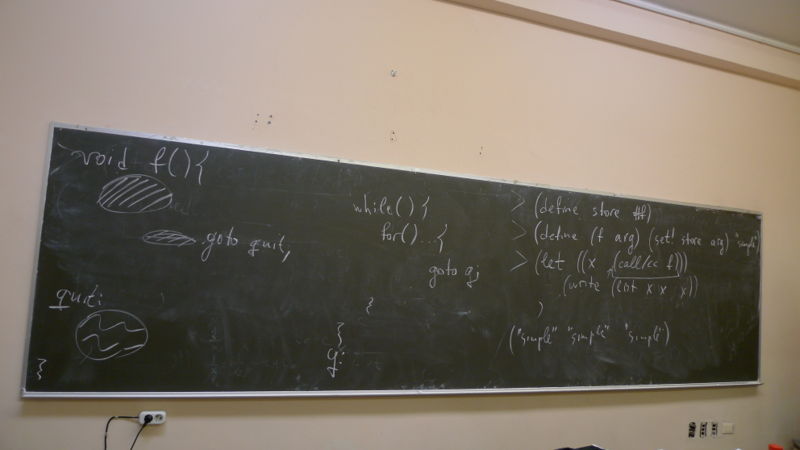 void f(){
goto quit;
quit:
}
while(){
for()...{
goto q;
}
}
q:
> (define store #f)
> (define (f arg) (set! store arg) "simple")
> (let ((x (call/cc f)))
(write (list x x x))
)
("simple" "simple" "simple")